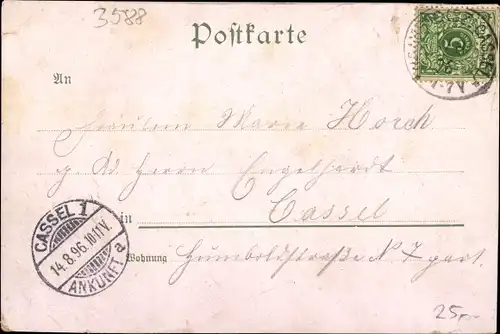 3588
Postkarte
5
1-7V
An
Fräulein Marie Horch
p. Ad. Herrn Engelhardt
in Cassel
Wohnung Humboldtstraße No 7 part.
CASSEL 1
14.8.96.10-11V.
ANKUNFT a
25,-